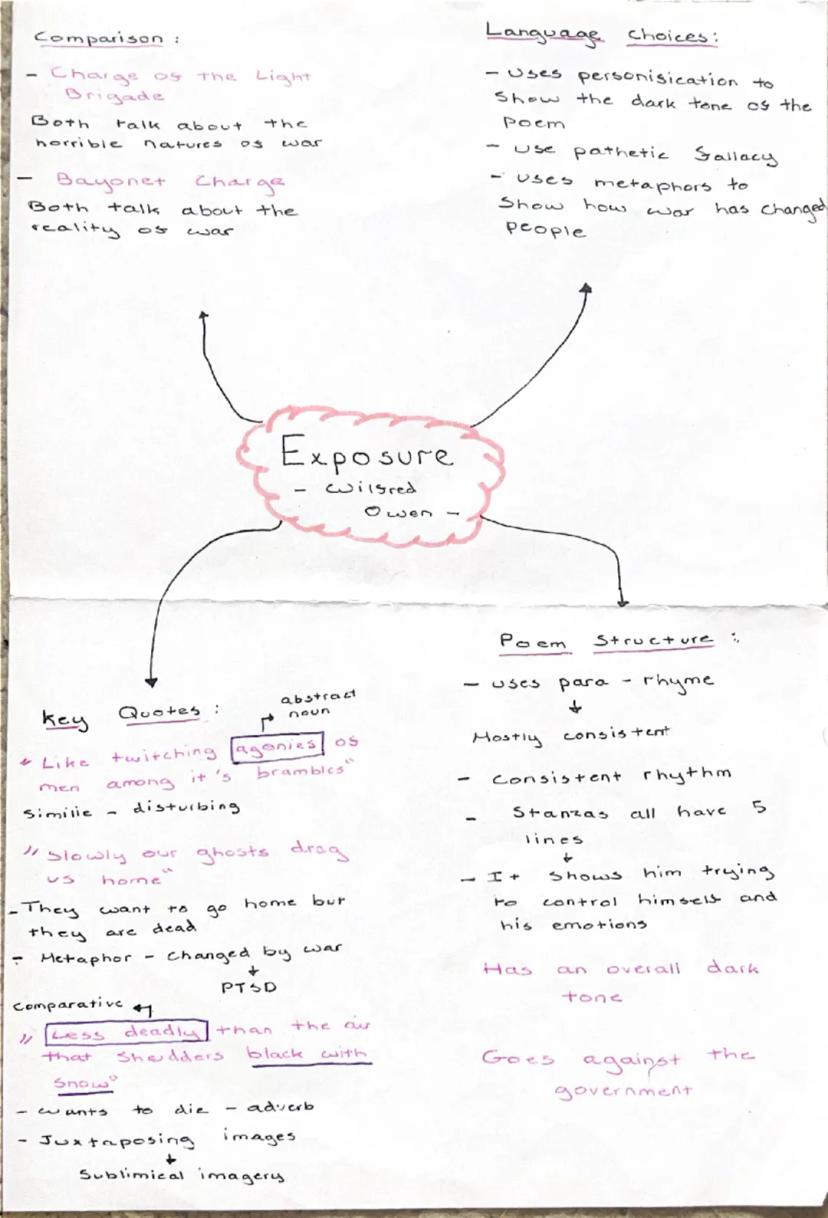 Comparison :
- Charge of the Light
Brigade
Both talk about the
horrible natures of war
- Bayonet Charge
Both talk about the
reality of war
Language choices:
- Uses personification to
show the dark tone of the
poem
- use pathetic fallacy
- uses metaphors to
show how war has changed
people
Exposure
- Wilfred
Owen -
Key Quotes :
abstract
noun
"Like twitching agonies of
men among it's brambles"
Similie - disturbing
"Slowly our ghosts drag
us home"
- They want to go home but
they are dead
- Metaphor - changed by war
↓
PTSD
Comparative
"Less deadly than the air
that shudders black with
snow"
- wants to die - adverb
- Juxtaposing images
↓
Sublimical imagery
Poem Structure :
- uses para - rhyme
↓
Mostly consistent
- Consistent rhythm
- Stanzas all have 5
lines
↓
- It shows him trying
to control himself and
his emotions
Has an overall dark
tone
Goes against the
government